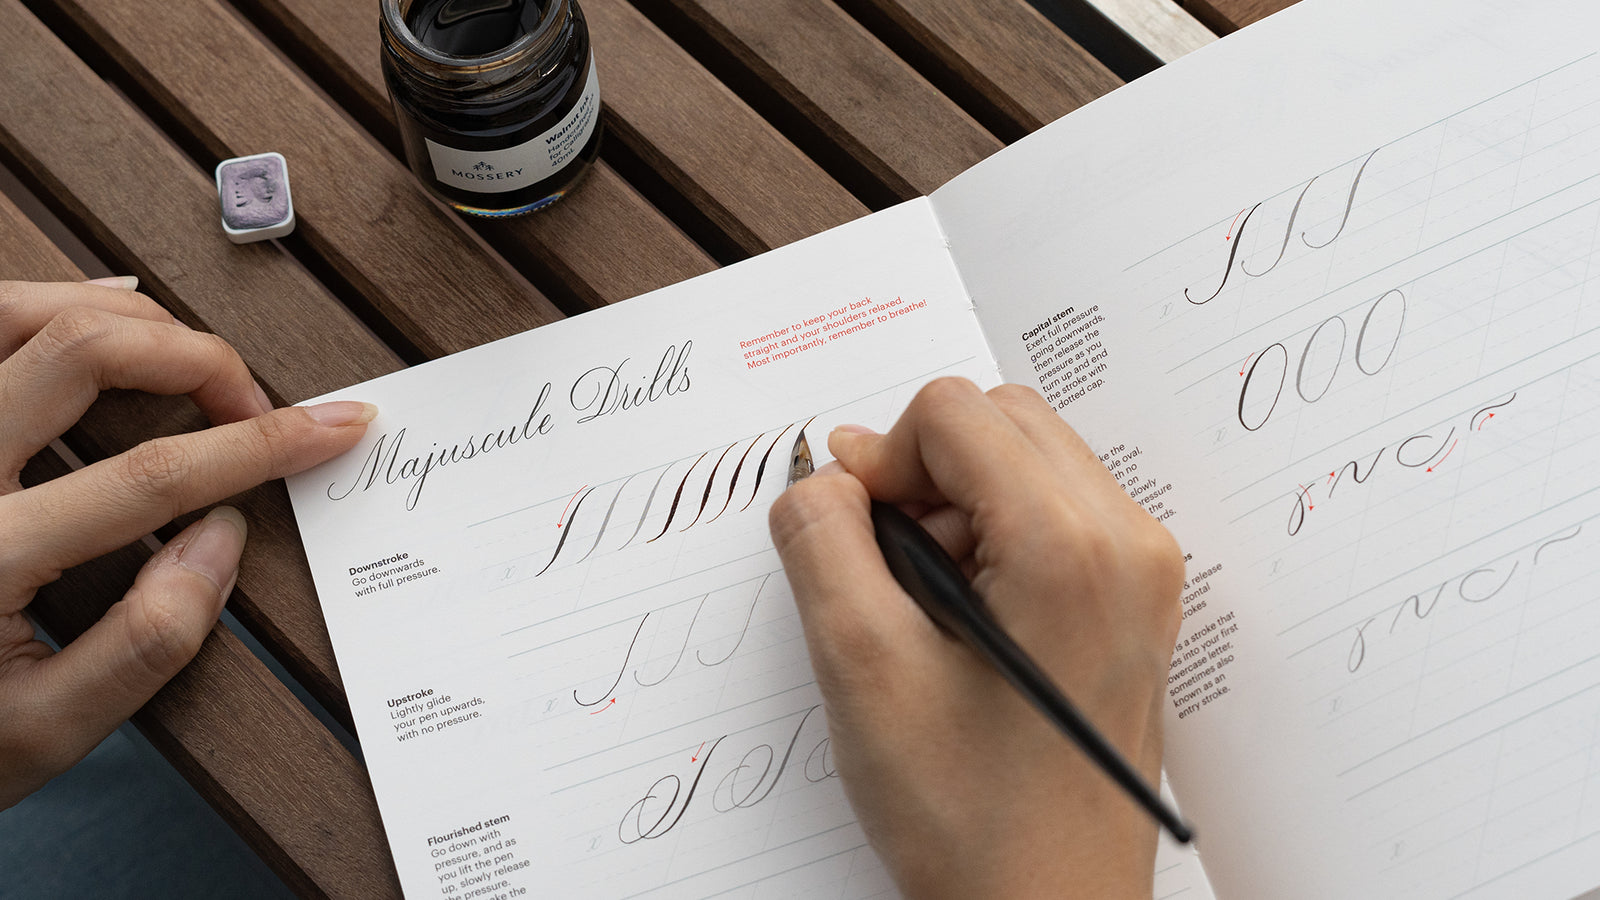 MOSSERY
Walnut Ink
Handcrafted
for Calligraphy
40ml
Majuscule Drills
Remember to keep your back
straight and your shoulders relaxed.
Most importantly, remember to breathe!
Downstroke
Go downwards
with full pressure.
x
Upstroke
Lightly glide
your pen upwards,
with no pressure.
x
Flourished stem
Go down with
pressure, and as
you lift the pen
up, slowly release
the pressure.
the
x
Capital stem
Exert full pressure
going downwards,
then release the
pressure as you
turn up and end
the stroke with
a dotted cap.
x
the
oval,
no
on
slowly
pressure
the
x
& release
is a stroke that
into your first
letter,
sometimes also
known as an
entry stroke.
x
x
x